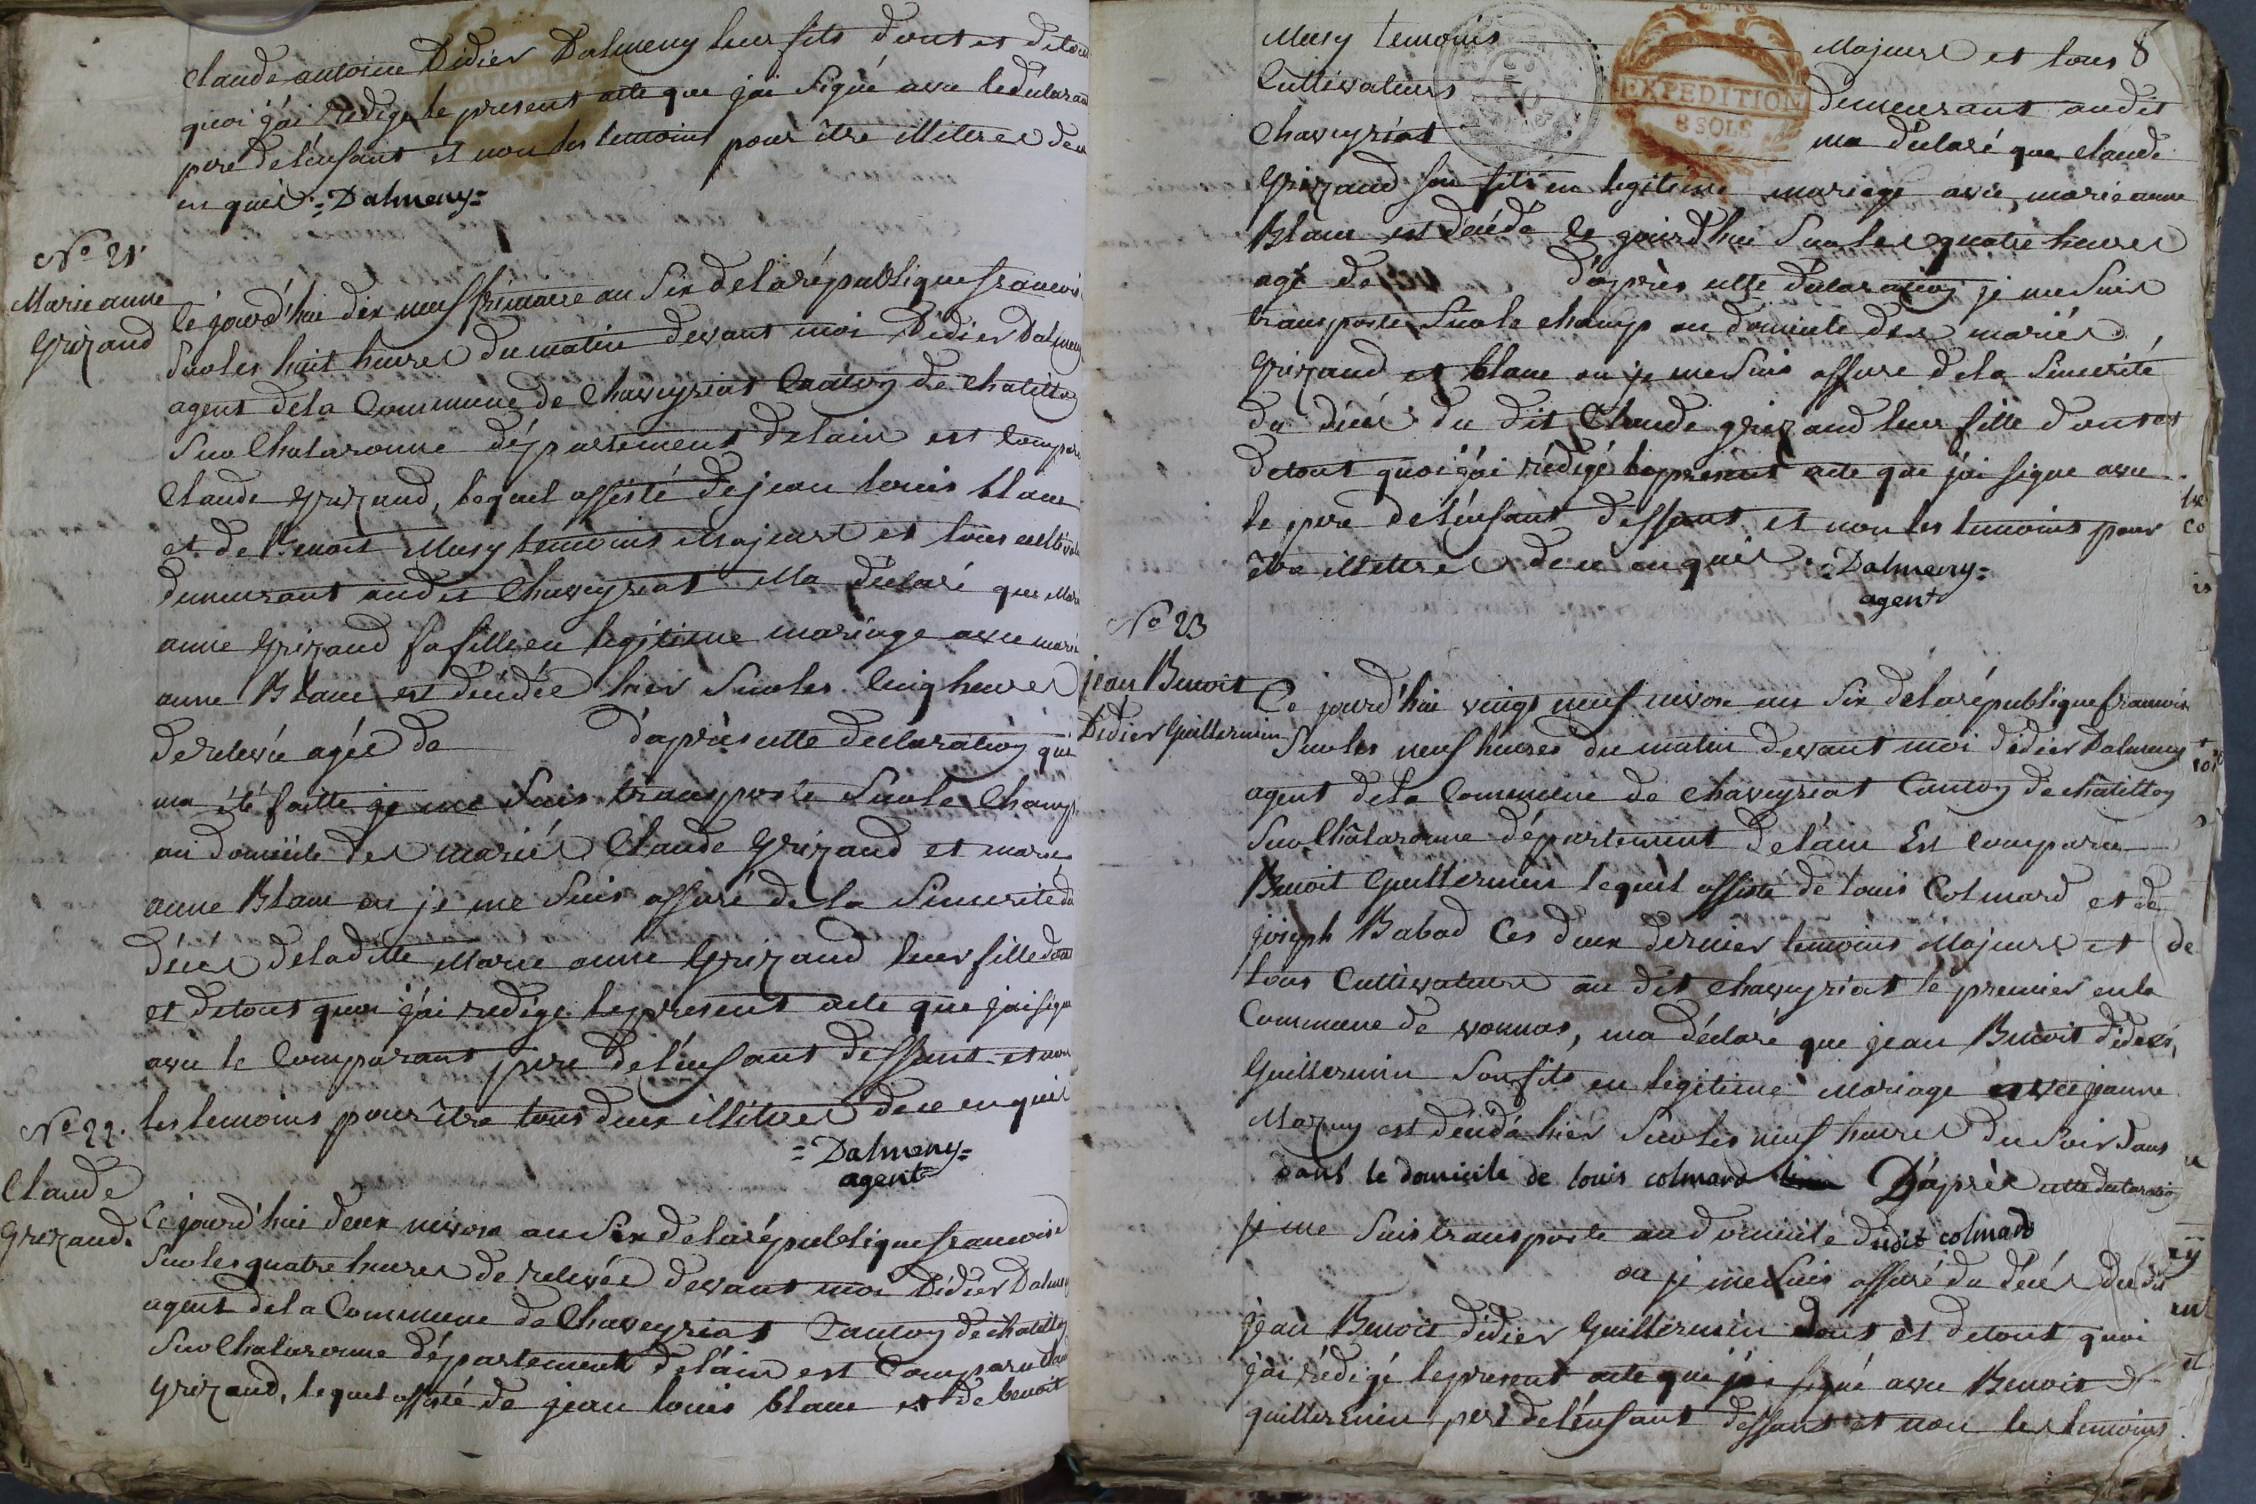 Claude antoine Didier Dalmeny leur fils dont et de tout
quoi j'ai redigé le present acte que j'ai signé avec le déclarant
pere de l'enfant et non les temoins pour être illitrés de ce
enquis =Dalmeny=
No 21.
Marie anne
Grizand
Ce jourd'hui dix neuf frimaire an six de la république francoise
sur les huit heures du matin devant moi Didier Dalmeny
agent de la Commune de Chaveyriat Canton de Chatillon
sur Chalaronne département de lain est comparu
Claude Grizand, lequel assisté de jean louis blanc
et de Benoit Musy temoins majeurs et tous cultivateurs
demeurant audit Chaveyriat ma déclaré que Marie
anne Grizand sa fille en legitime mariage avec marie
anne Blanc est décédée hier sur les cinq heures
de relevée agée de d'après cette declaration qui
ma été faitte je me suis transporté sur le Champ
au domicile des mariés Claude Grizand et marie
anne Blanc ou je me suis assuré de la sincerité du
décés de la ditte Marie anne Grizand leur fille dont
et de tout quoi j'ai redigé le present acte que j'ai signé
avec le Comparant pere de l'enfant deffunt et non
les temoins pour être tous deux illitrés de ce enquis
=Dalmeny=
agent
No 22.
Claude
Grizand.
Ce jourd'hui deux nivose an six de la république francoise
sur les quatre heures de relevée devant moi Didier Dalmeny
agent de la Commune de Chaveyriat Canton de chatillon
sur Chalaronne département de l'ain est Comparu Claude
Grizand, lequel assisté de jean louis blanc et de benoit
8
Musy temoins majeurs et tous
Cultivateurs demeurant audit
Chaveyriat ma déclaré que claude
Grizand son fils en legitime mariage avec marie anne
Blanc est décédé ce jourd'hui sur les quatre heures
agé de d'après cette déclaration je me suis
transporté sur le champ au domicile des mariés
Grizand et blanc ou je me suis assuré de la sincerité
du décés du dit Claude grizand leur fille dont et
de tout quoi j'ai rédigé le présent acte que j'ai signe avec
le pere de l'enfant deffunt et non les temoins pour
être illitrés de ce enquis =Dalmeny=
agent
EXPEDITION
8 SOLS
No 23
jean Benoit
Didier Guillermin
Ce jourd'hui vingt neuf nivose an six de la république francoise
sur les neuf heures du matin devant moi didier Dalmeny
agent de la Commune de chaveyriat Canton de châtillon
sur Châlaronne département de l'ain Est comparu
Benoit Guillermin lequel assisté de louis Colmard et de
joseph Babad ces deux dernier temoins majeurs et
tous Cultivateurs au dit chaveyriat le premier en la
Commune de vonnas, ma déclaré que jean Benoit didier
Guillermin son fils en legitime mariage avec jeanne
Mazuy est décédé hier sur les neuf heures du soir dans
dans le domicile de louis colmard D'après cette declaration
je me suis transporté au domicile dudit colmard
ou je me suis assuré du décés du dit
jean Benoit didier Guillermin dont et de tout quoi
j'ai rédigé le present acte que j'ai signé avec Benoit
guillermin pere de l'enfant deffunt et non les temoins